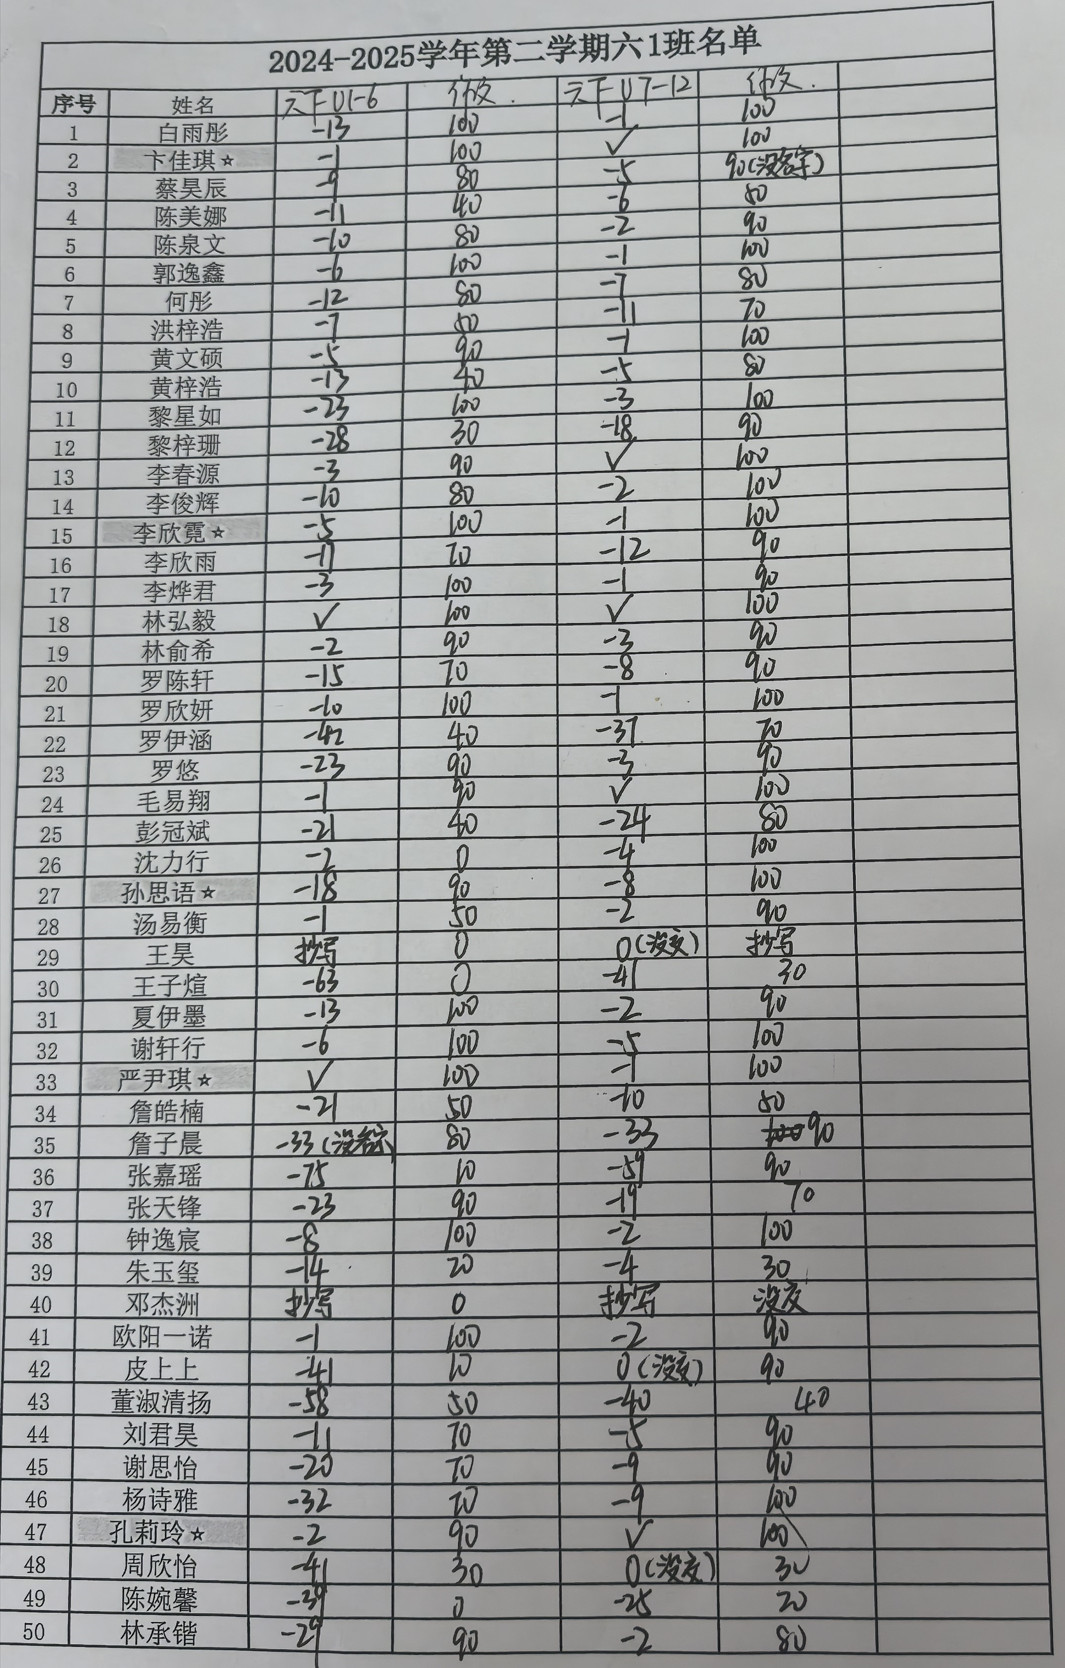 2024-2025学年第二学期六1班名单
序号 姓名 六下U1-6 作文. 六下U7-12 作文.
1 白雨彤 -13 100 -1 100
2 卞佳琪☆ -1 100 ✓ 100
3 蔡昊辰 -9 80 -5 90(没名字)
4 陈美娜 -11 40 -6 80
5 陈泉文 -10 80 -2 90
6 郭逸鑫 -6 100 -1 100
7 何彤 -12 80 -7 80
8 洪梓浩 -7 80 -11 70
9 黄文硕 -5 90 -1 100
10 黄梓浩 -13 40 -5 80
11 黎星如 -23 100 -3 100
12 黎梓珊 -28 30 -18 90
13 李春源 -3 90 ✓ 100
14 李俊辉 -10 80 -2 100
15 李欣霓☆ -5 100 -1 100
16 李欣雨 -17 70 -12 90
17 李烨君 -3 100 -1 90
18 林弘毅 ✓ 100 ✓ 100
19 林俞希 -2 90 -3 90
20 罗陈轩 -15 70 -8 90
21 罗欣妍 -10 100 -1 100
22 罗伊涵 -42 40 -37 70
23 罗悠 -23 90 -3 90
24 毛易翔 -1 90 ✓ 100
25 彭冠斌 -21 40 -24 80
26 沈力行 -2 0 -4 100
27 孙思语☆ -18 90 -8 100
28 汤易衡 -1 50 -2 90
29 王昊 抄写 0 0(没交) 抄写
30 王子煊 -63 0 -41 30
31 夏伊墨 -13 100 -2 90
32 谢轩行 -6 100 -5 100
33 严尹琪☆ ✓ 100 -1 100
34 詹皓楠 -21 50 -10 80
35 詹子晨 -33(没名字) 80 -33 90
36 张嘉瑶 -75 10 -59 90
37 张天锋 -23 90 -19 70
38 钟逸宸 -8 100 -2 100
39 朱玉玺 -14 20 -4 30
40 邓杰洲 抄写 0 抄写 没交
41 欧阳一诺 -1 100 -2 90
42 皮上上 -41 10 0(没交) 90
43 董淑清扬 -58 50 -40 40
44 刘君昊 -11 70 -5 90
45 谢思怡 -20 70 -9 90
46 杨诗雅 -32 70 -9 100
47 孔莉玲☆ -2 90 ✓ 100
48 周欣怡 -41 30 0(没交) 30
49 陈婉馨 -39 0 -25 20
50 林承锴 -29 90 -2 80